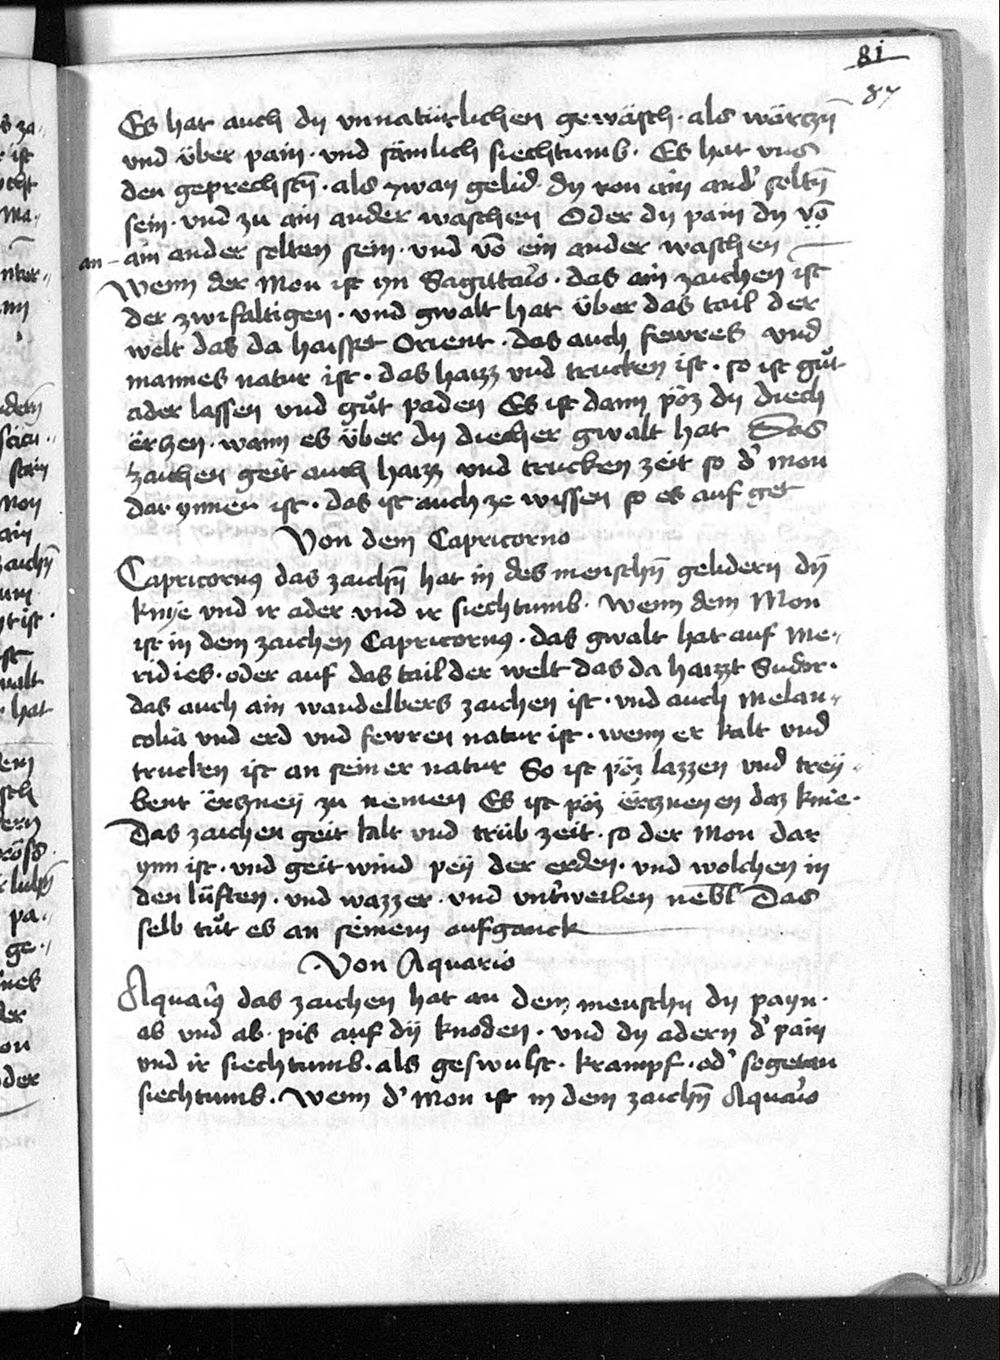 81
87
Es hat auch dy vnnatürlichen gewäsch · als wärczñ
vnd über pain · vnd sämlich siechtumb · Es hat vns
den geprechstñ · als zway gelid dy von ain and' soltñ
sein · vnd zu ain ander waschen Oder dy pain dy võ
an ain ander solten sein · vnd võ ein ander waschen
Wenn der Mon ist yn Sagittar'o · das ain zaichen ist
der zwifaltigen · vnd gwalt hat über das tail der
welt das da haisset Orient · das auch fewres vnd
mannes natur ist · das haizz vnd trucken ist · so ist gůt
ader lassen vnd gůt paden Es ist dann pöz dy diech
ërczen · wann es über dy diecher gwalt hat Das
zaichen geit auch haizz vnd trucken zeit so d' mon
dar ynnen ist · das ist auch ze wissen so es auf get
Von dem Capricorno
Capricornꝰ das zaichñ hat in des menschñ gelidern dÿ
knye vnd ir ader vnd ir siechtumb · Wenn dem Mon
ist in dem zaichen Capricornꝰ · das gwalt hat auf me-
ridies · oder auf das tail der welt das da haizzt Sudor ·
das auch ain wandelbers zaichen ist · vnd auch melan-
colia vnd erd vnd fewren natur ist · wenn er kalt vnd
trucken ist an seiner natur So ist pöz lazzen vnd trey-
bent ërczneÿ zu nemen Es ist pöz ërcznenen daz knie ·
Das zaichen geit kalt vnd trüb zeit · so der Mon dar
ynn ist · vnd geit wind peÿ der erden · vnd wolchen in
den lüften · vnd wazzer · vnd vnt'weilen nebl Das
selb tůt es an seinem aufganck
Von Aquario
Aquar'ꝰ das zaichen hat an dem menschn dy payn ·
ab vnd ab · pis auf dÿ knoden · vnd dy adern d' pain
vnd ir siechtumb · als geswulst · krampf · od' sogetan
siechtumb · Wenn d' Mon ist in dem zaichñ Aquar'o